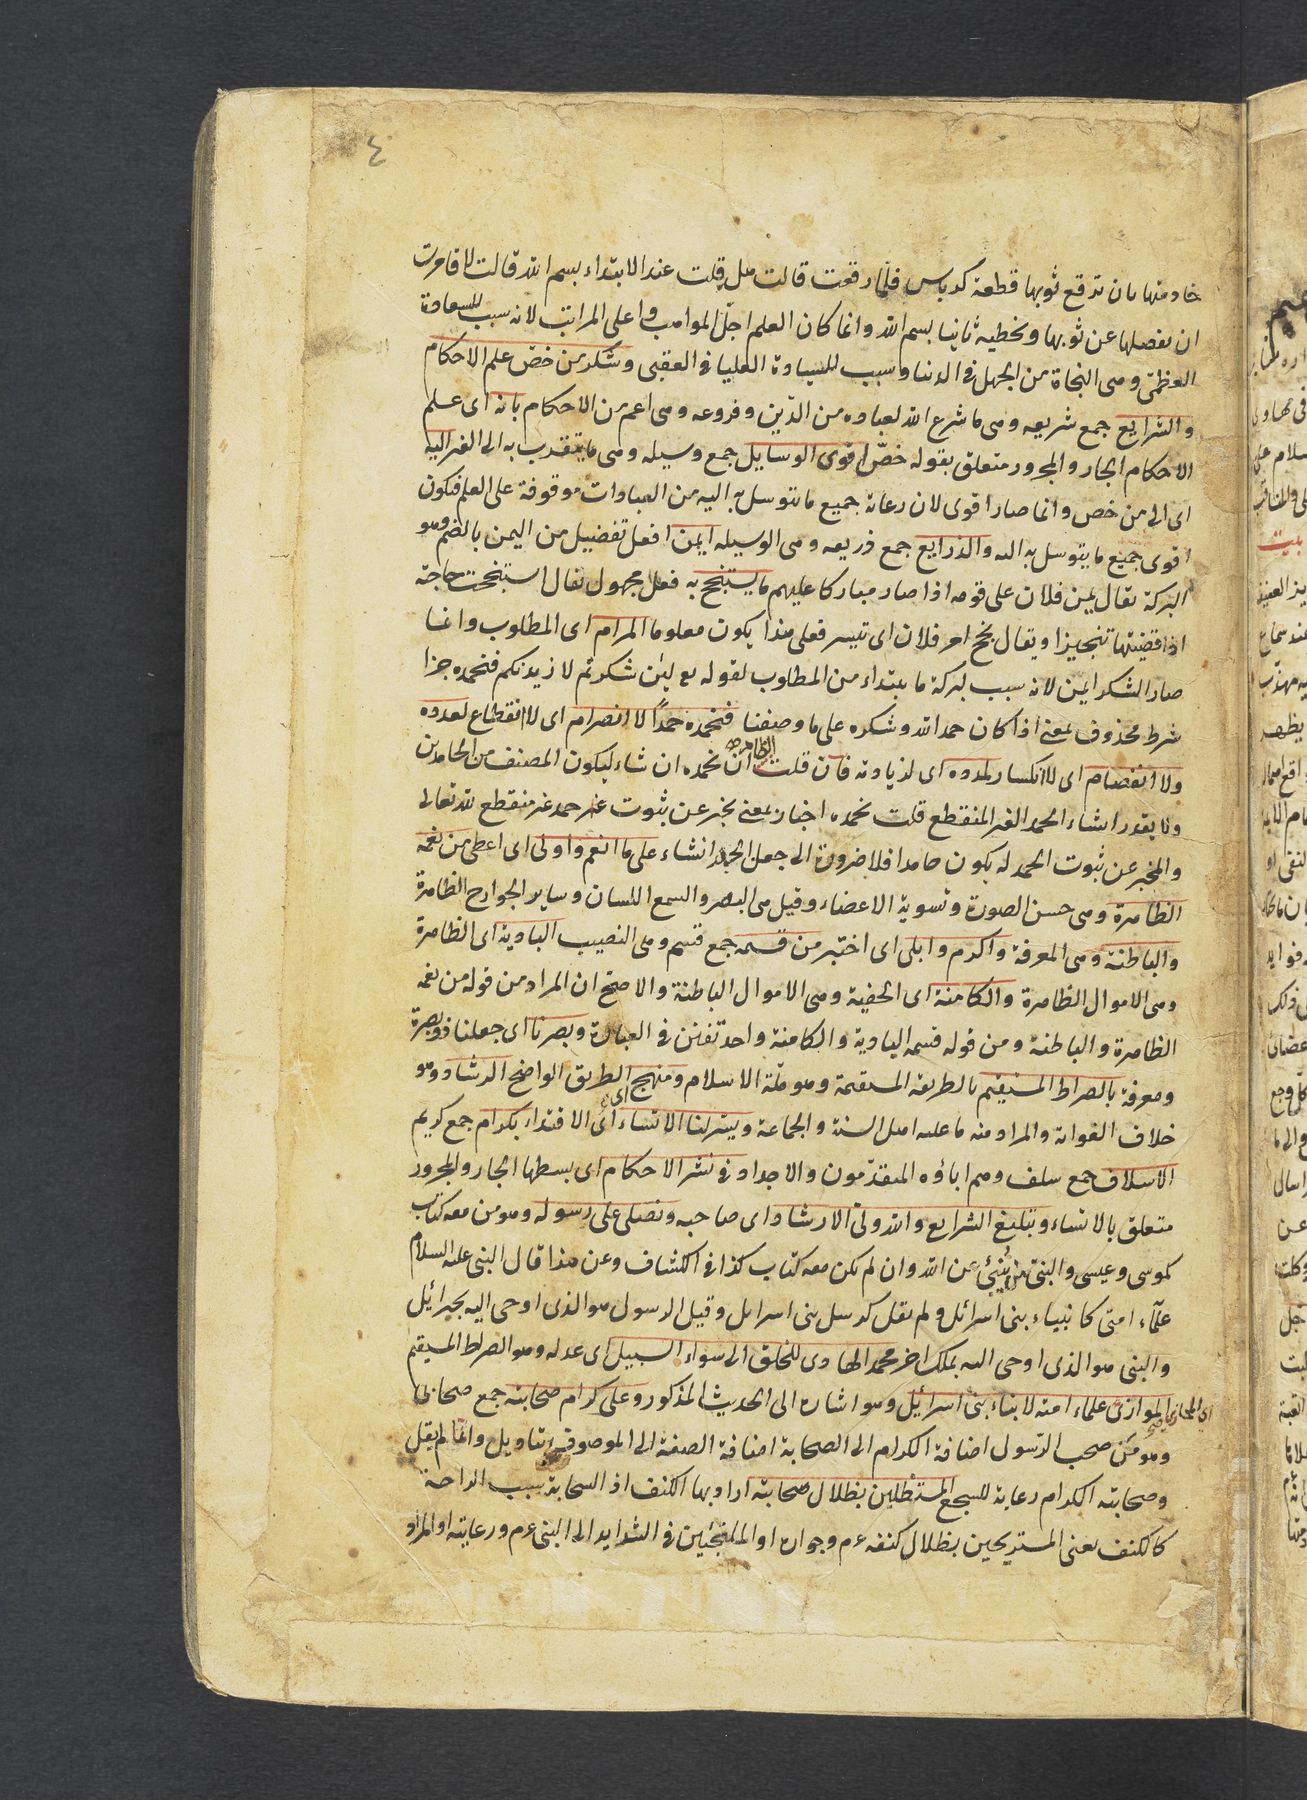 ٤
خادمتها بان ترقع ثوبها قطعة كرباس فلما رقعت قالت هل قلت عند الابتداء بسم الله قالت لا فامرت
ان تفصلها عن ثوبها وتخطيه ثانيا بسم الله وانما كان العلم اجل المواهب واعلى المراتب لانه سبب للسعادة
العظمى وهى النجاة من الجهل فى الدنيا وسبب للسيادة العليا فى العقبى وشكر من خص علم الاحكام
والشرايع جمع شريعه وهى ما شرع الله لعباده من الدين وفروعه وهى اعم من الاحكام بانه اى علم
الاحكام الجار والمجرور متعلق بقوله خص اقوى الوسايل جمع وسيله وهى ما يتقرب به الى الغير اليه
اى الى من خص وانما صار اقوى لان رعاية جميع ما يتوسل به اليه من العبادات موقوفة على العلم فيكون
اقوى جميع ما يتوسل به اليه والذرايع جمع ذريعه وهى الوسيله ايمن افعل تفضيل من اليمن بالضم وهو
البركة يقال يمن فلان على قومه اذا صار مباركا عليهم ما يستنجح به فعل مجهول يقال استنجحت حاجته
اذا قضيتها تنجيزا ويقال نجح امر فلان اى تيسر فعلى هذا يكون معلوما المرام اى المطلوب وانما
صار الشكر ايمن لانه سبب لبركة ما يبتداء من المطلوب لقوله تع لئن شكرتم لازيدنكم فنحمده جزا
شرط محذوف بمعنى اذا كان حمد الله وشكره على ما وصفنا فنحمده حمدا لا انصرام اى لا انقطاع لعدده
ولا انفصام اى لا انكسار لمدده اى لزيادته فان قلت الظاهر ان نحمده انشاء ليكون المصنف من الحامدين
ولا يقدر انشاء الحمد الغير المنقطع قلت نحمده اخبار بمعنى نخبر عن ثبوت حمد غير منقطع لله تعالى
والمخبر عن ثبوت الحمد له يكون حامدا فلا ضرورة الى جعل الحمد انشاء على ما انعم واولى اى اعطى من نعمه
الظاهرة وهى حسن الصورة وتسوية الاعضاء وقيل هى البصر والسمع اللسان وساير الجوارح الظاهرة
والباطنة وهى المعرفة واكرم وابلى اى اختبر من قسمه جمع قسم وهى النصيب البادية اى الظاهرة
وهى الاموال الظاهرة والكامنة اى الخفية وهى الاموال الباطنة والاصح ان المراد من قوله من نعمه
الظاهرة والباطنة ومن قوله قسمه البادية والكامنة واحد تفنن فى العبارة وبصرنا اى جعلنا ذو بصرة
ومعرفة بالصراط المستقيم بالطريقه المستقيمة وهو ملة الاسلام ومنهج اى الطريق الواضح الرشاد وهو
خلاف الغواية والمراد منه ما عليه اهل السنة والجماعة ويسر لنا الايتساء اى الاقتداء بكرام جمع كريم
الاسلاف جمع سلف وهم اباؤه المتقدمون والاجداد فى نشر الاحكام اى بسطها الجار والمجرور
متعلق بالايتساء وتبليغ الشرايع والله ولى الارشاد اى صاحبه ونصلى على رسوله وهو من معه كتاب
كموسى وعيسى والنبى من ينبئ عن الله وان لم يكن معه كتاب كذا فى الكشاف وعن هذا قال النبى عليه السلام
علماء امتى كانبياء بنى اسرائل ولم يقل كرسل بنى اسرايل وقيل الرسول هو الذى اوحى اليه بجبرائيل
والنبى هو الذى اوحى اليه بملك اخر محمد الهادى للخلق الى سواء السبيل اى عدله وهو الصراط المستقيم
الموازى علماء امته لانبياء بنى اسرائيل وهو اشارة الى الحديث المذكور وعلى كرام صحابته جمع صحابى
وهو من صحب الرسول اضافة الكرام الى الصحابة اضافة الصفة الى الموصوف بتاويل وانما لم يقل
وصحابته الكرام رعاية للسجع المستظلين بظلال صحابته اراد بها الكنف اذ السحابة سبب الراحة
كالكنف يعنى المستريحين بظلال كنفه ءم وجواره او الملتجئين فى الشدايد الى النبى ءم ورعايته او المراد